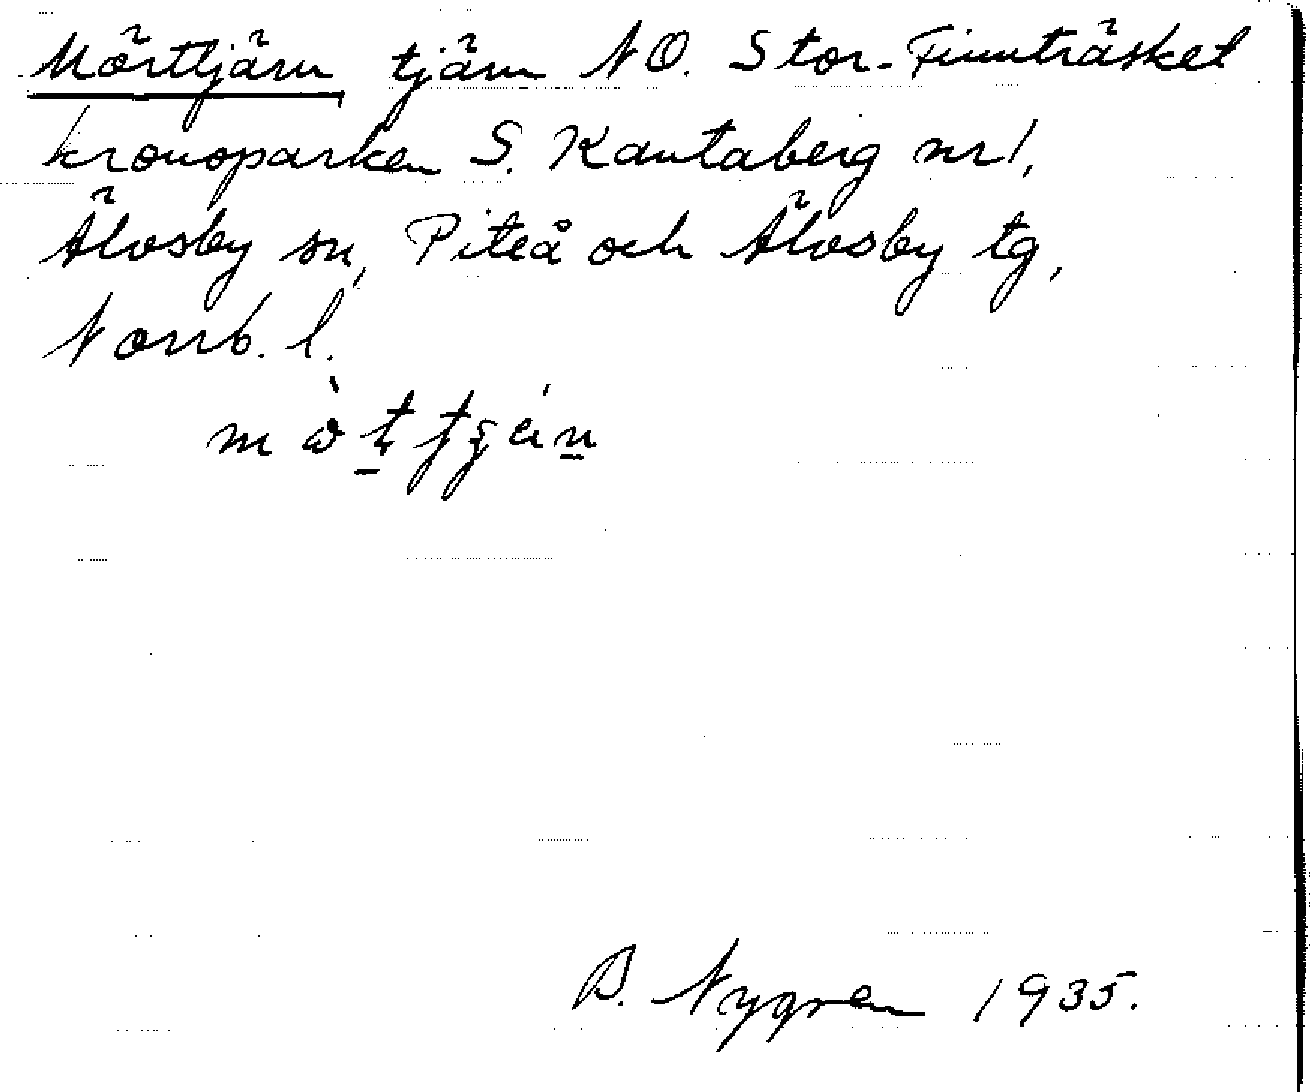 Mörttjärn tjärn NO. Stor-Finnträsket
kronoparken S. Kantaberg nr 1,
Älvsby sn, Piteå och Älvsby tg,
Norrb. l.
B. Nygren 1935.